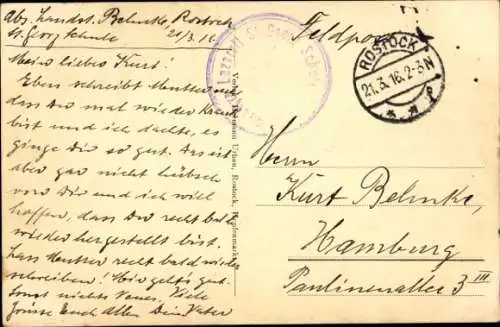 Abs. Landst. Behnke, Rostock
St. Georg Schule 21/3.16.
Mein lieber Kurt!
Eben schreibt Mutter mir
dass Du mal wieder krank
bist und ich dachte, es
ginge Dir so gut. Das ist
aber gar nicht hübsch
von Dir und ich will
hoffen, dass Du recht bald
wieder hergestellt bist.
Lass Mutter recht bald wieder
schreiben! Mir geht's gut.
Sonst nichts Neues. Viele
Grüsse Euch allen Dein Vater
Feldpost
Lazarett St. Georg Schule
Rostock
ROSTOCK
21.3.16.2-3N
Herrn
Kurt Behnke,
Hamburg
Paulinenallee 3 III